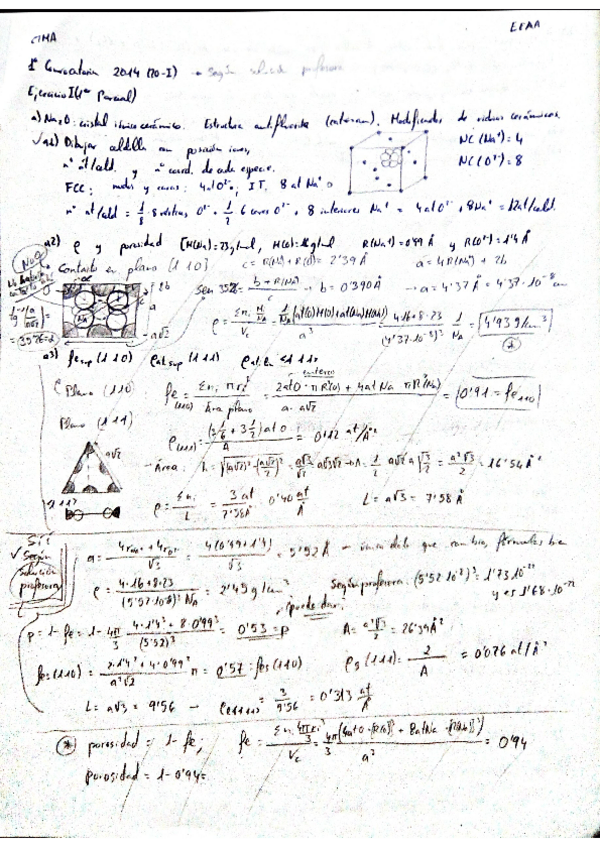 CIMA
EEAA
1ª Convocatoria 2014 (20-I) → Según solución profesora
Ejercicio II (1er Parcial)
a) Na₂O: cristal iónico cerámico. Estructura antifluorita. Modificador de vidrios cerámicos.
√a1) Dibujar celdilla con posición iones,
nº at/celd. y nº coord. de cada especie.
NC (Na⁺) = 4
NC (O²⁻) = 8
FCC: nudos y caras: 4at O²⁻, IT, 8 at Na⁺
nº at/celd = 1/8 · 8 vértices O²⁻ + 1/2 · 6 caras O²⁻ + 8 interiores Na⁺ = 4at O²⁻ + 8Na⁺ = 12at/celd.
a2) ρ y porosidad [M(Na)=23g/mol, M(O)=16g/mol R(Na⁺)=0'99 Å y R(O²⁻)=1'4 Å
Contacto en plano (110)
c = R(Na⁺) + R(O) = 2'39 Å
a = 4R(Na⁺) + 2b
→ b = 0'390 Å → a = 4'37 Å = 4'37·10⁻⁸ cm
= 4'93 g/cm³
a√2
a3) fe sup (110) ρat sup (111) ρat lin <111>
Plano (110): fe(110) = Σnᵢ πrᵢ² / Área plano = 2at O · πR²(O) + 4at Na πR²(Na) / a · a√2 = 0'91 = fe₁₁₀
Plano (111)
ρ(111) = (3 1/6 + 3 1/2) at O / A = 0'12 at/Å²
a√2
- Área: = a²√3/2 = 16'54 Å²
ρ = Σnᵢ / L = 3 at / 7'58 Å = 0'40 at/Å
L = a√3 = 7'58 Å
SÍ!
√ Según solución profesora
a = 4rNa⁺ + 4rO²⁻ / √3 = 4(0'99+1'4) / √3 = 5'52 Å → único dato que cambia, fórmulas bien
ρ = 4·16+8·23 / (5'52·10⁻⁸)³ NA = 2'45 g/cm³
Según profesora: (5'52·10⁻⁸)³ = 1'73·10⁻²¹
y es 1'68·10⁻²²
¡puede dar.
p = 1 - fe = 1 - 4π/3 · 4·1'4³ + 8·0'99³ / (5'52)³ = 0'53 = p
A = a²√3/2 = 26'39 Å²
fes (110) = 2·1'4² + 4·0'99² / a²√2 π = 0'57 = fes (110)
ρs (111) = 2/A = 0'076 at/Å²
L = a√3 = 9'56 → ρ<111> = 3/9'56 = 0'313 at/Å
* porosidad = 1 - fe; fe = Σnᵢ 4/3 πrᵢ³ / Vc = 4π/3 [4at O · [R(O)]³ + 8at Na · [R(Na)]³] / a³ = 0'94
porosidad = 1 - 0'94 =